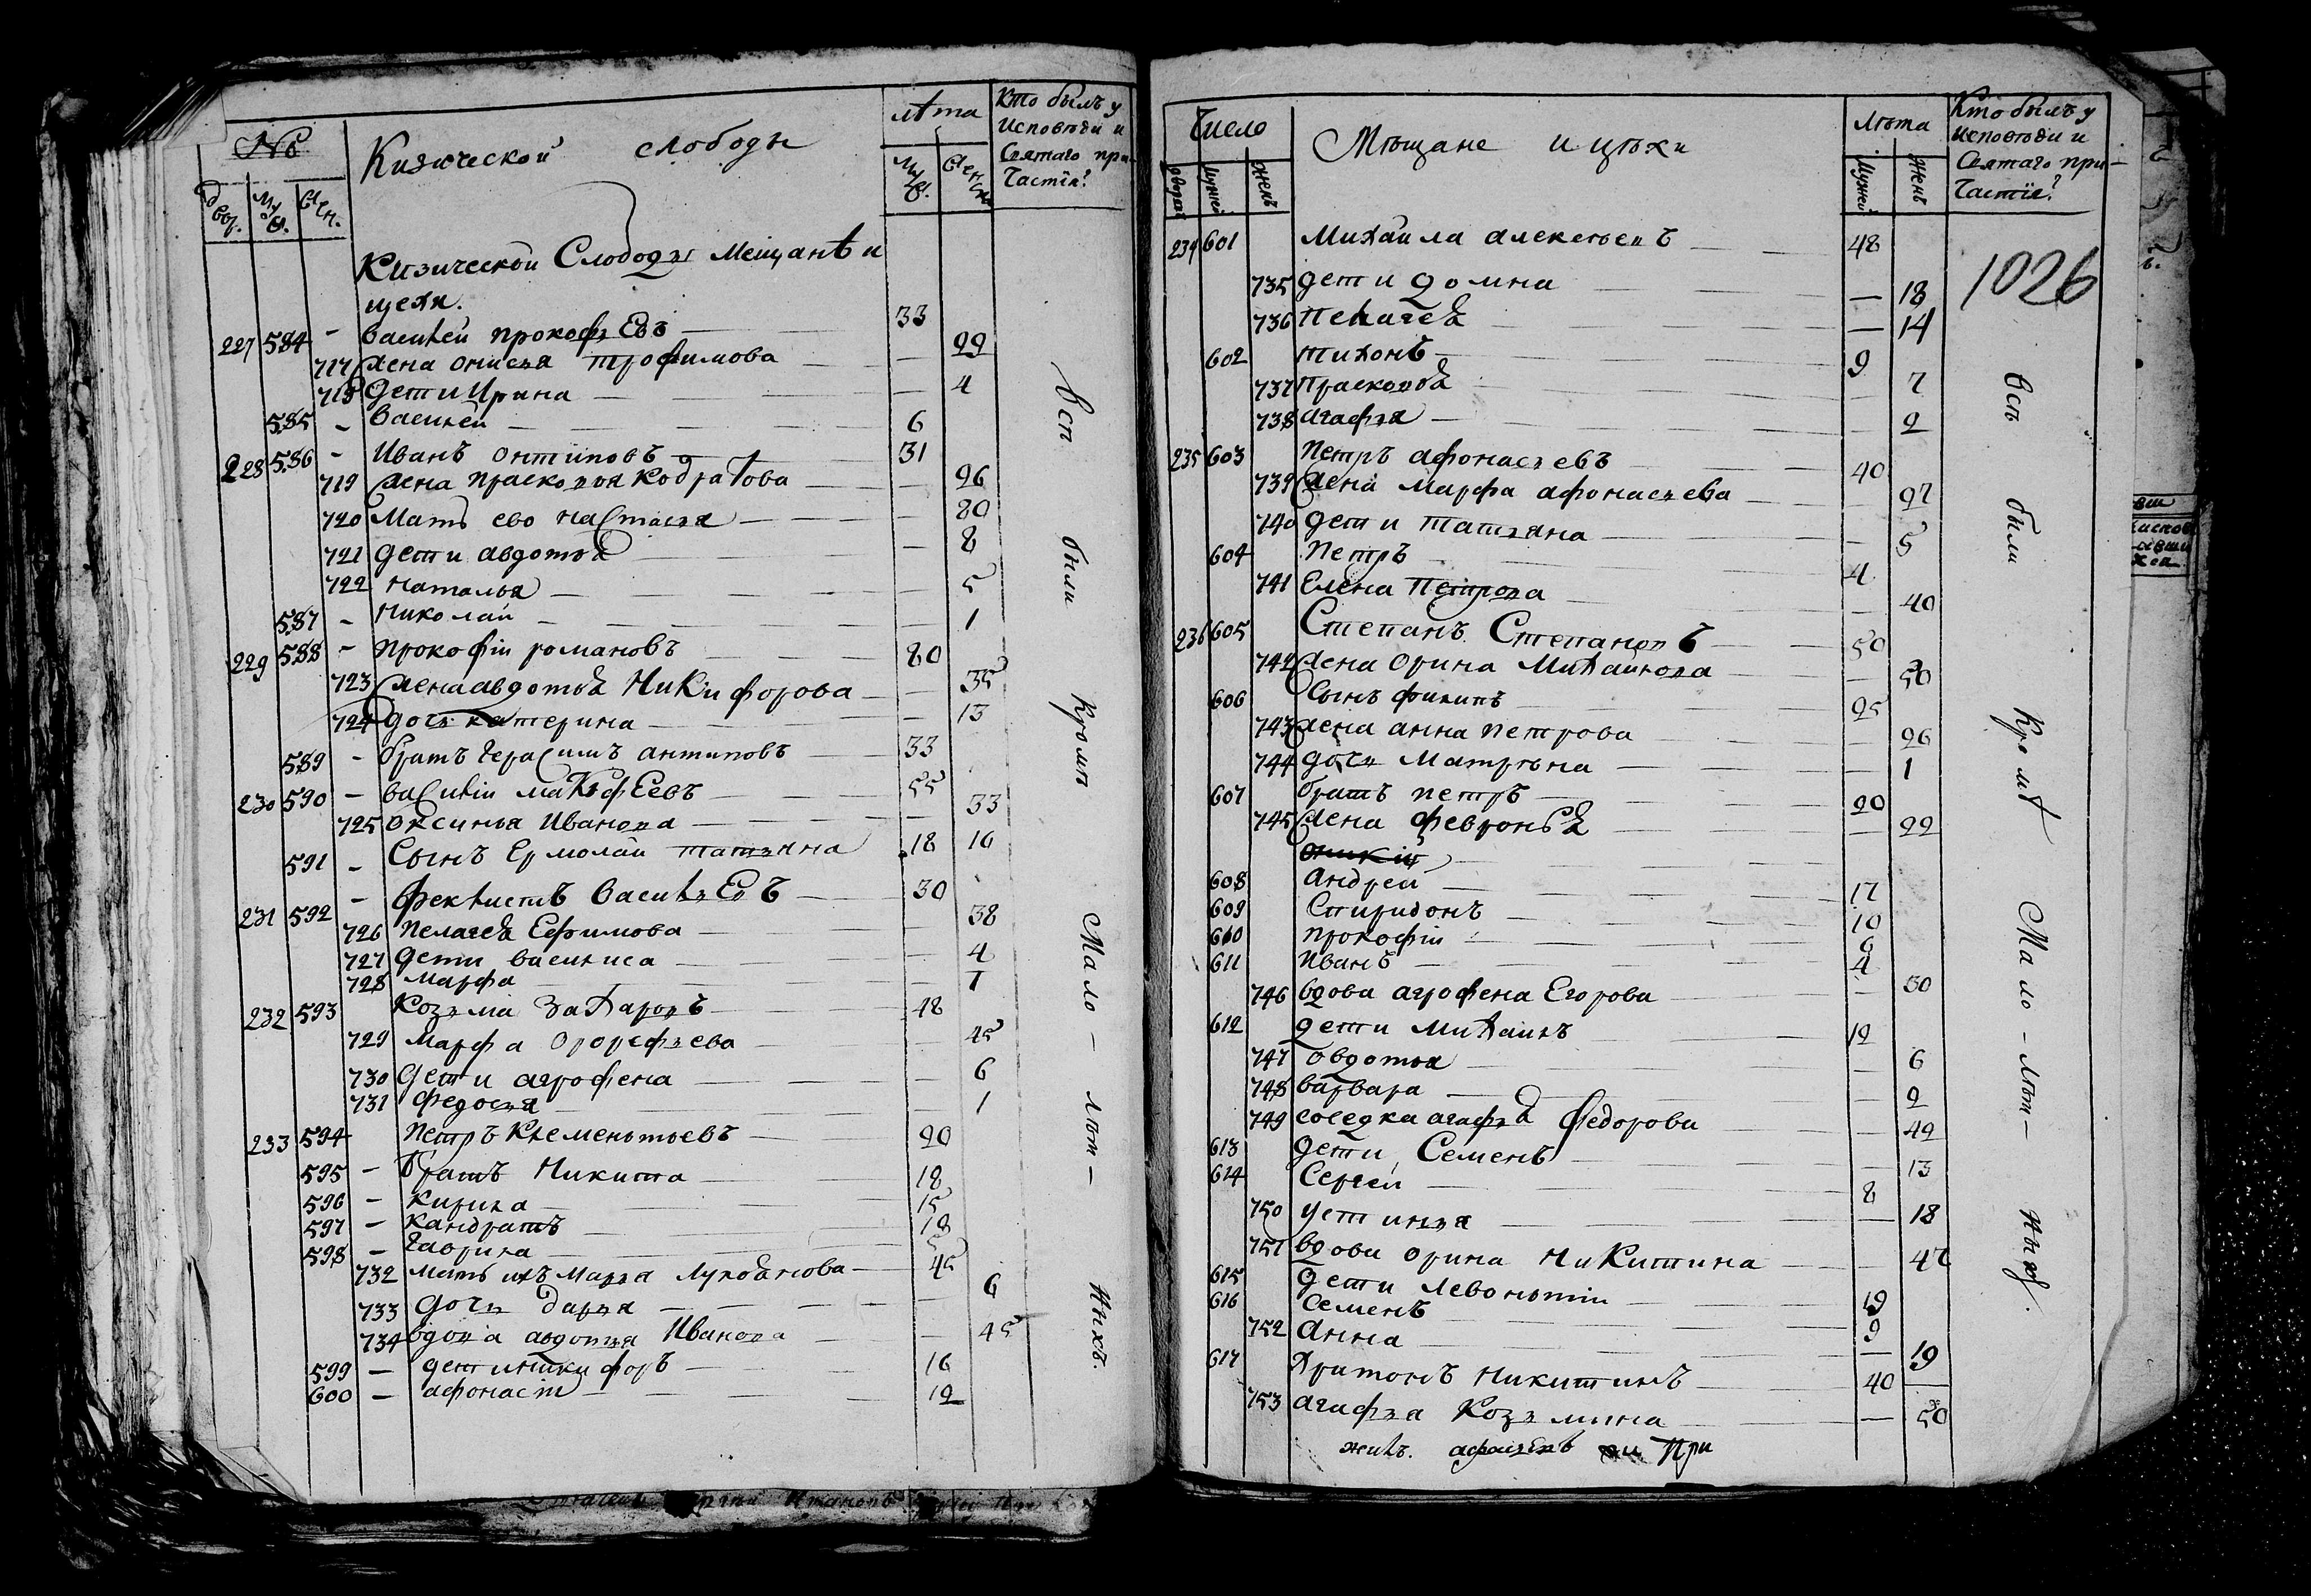 № Кизической слободы лѣта Кто былъ у
Исповѣди и
Святаго при-
частїя?
двор. муж. жен. муж. женск.
Кизической Слободы Мещанѣ и
цехи.
227 584 - Василей прокофьЕвъ — 33
717 жена онисья трофимова — 22
718 Дети Ирина — 4
585 - Василей — 6
228 586 - Иванъ онтиповъ — 31
719 жена прасковья Кодратова — 26
720 Мать ево настасья — 80
721 дети авдотья — 8
722 наталья — 5
587 - Николай — 1
229 588 - прокофiй романовъ — 80
723 жена авдотья Никифорова — 35
724 дочь катерина — 13
589 - братъ Герасимъ антиповъ — 33
230 590 - василiй макѣФЕевъ — 55
725 оксинья Иванова — 33
591 - Сынъ Ермолай татьяна 18 16
231 592 - фектистъ ВасильЕвъ — 30
726 пелагея Ефимова — 38
727 дети василиса — 4
728 марфа — 1
232 593 Козьма Захаровъ — 48
729 марфа Дорофьева — 45
730 Дети агрофена — 6
731 федосья — 1
233 594 петръ Клементьевъ — 20
595 - братъ Никита — 18
596 - кирила — 15
597 - кандратъ — 18
598 - гаврила — 5
732 мать ихъ марья Лукоянова — 45
733 дочь дарья — 6
734 вдова авдотья Иванова — 45
599 - дети никифоръ — 16
600 - афонасiй — 12
Всѣ были Кромѣ Мало - лѣт - ныхъ.
Число Мѣщане и цѣхи Лѣта Кто былъ у
исповѣди и
Святаго при-
частїя?
дворов мужей женъ мужей женъ
1026
234 601 Михайла алексеевъ — 48
735 дети домна — 18
736 пелагея — 14
602 тихонъ — 9
737 прасковья — 7
738 агафья — 2
235 603 петръ афонасьевъ — 40
739 жена марфа афонасьева — 27
740 дети татьяна — 5
604 петръ — 4
741 Елена Петрова — 40
236 605 Степанъ Степановъ — 50
742 жена орина Михайлова — 50
606 Сынъ филипъ — 25
743 жена анна петрова — 26
744 дочь Матрѣна — 1
607 братъ петръ — 20
745 жена февронья — 22
608 андрей — 17
609 Спиридонъ — 10
610 прокофiй — 6
611 иванъ — 4
746 вдова агрофена Егорова — 30
612 дети Михаилъ — 12
747 овдотья — 6
748 варвара — 2
749 соседка агафья Федорова — 42
613 дети Семенъ — 13
614 Сергей — 8
750 устинья — 18
751 вдова орина Никитина — 47
615 дети левонтiй — 19
616 Семенъ — 9
752 Анна — 19
617 Харитонъ Никитинъ — 40
753 агафья Козьмина — 50
При
Всѣ были Кромѣ Мало - лѣт - ныхъ.